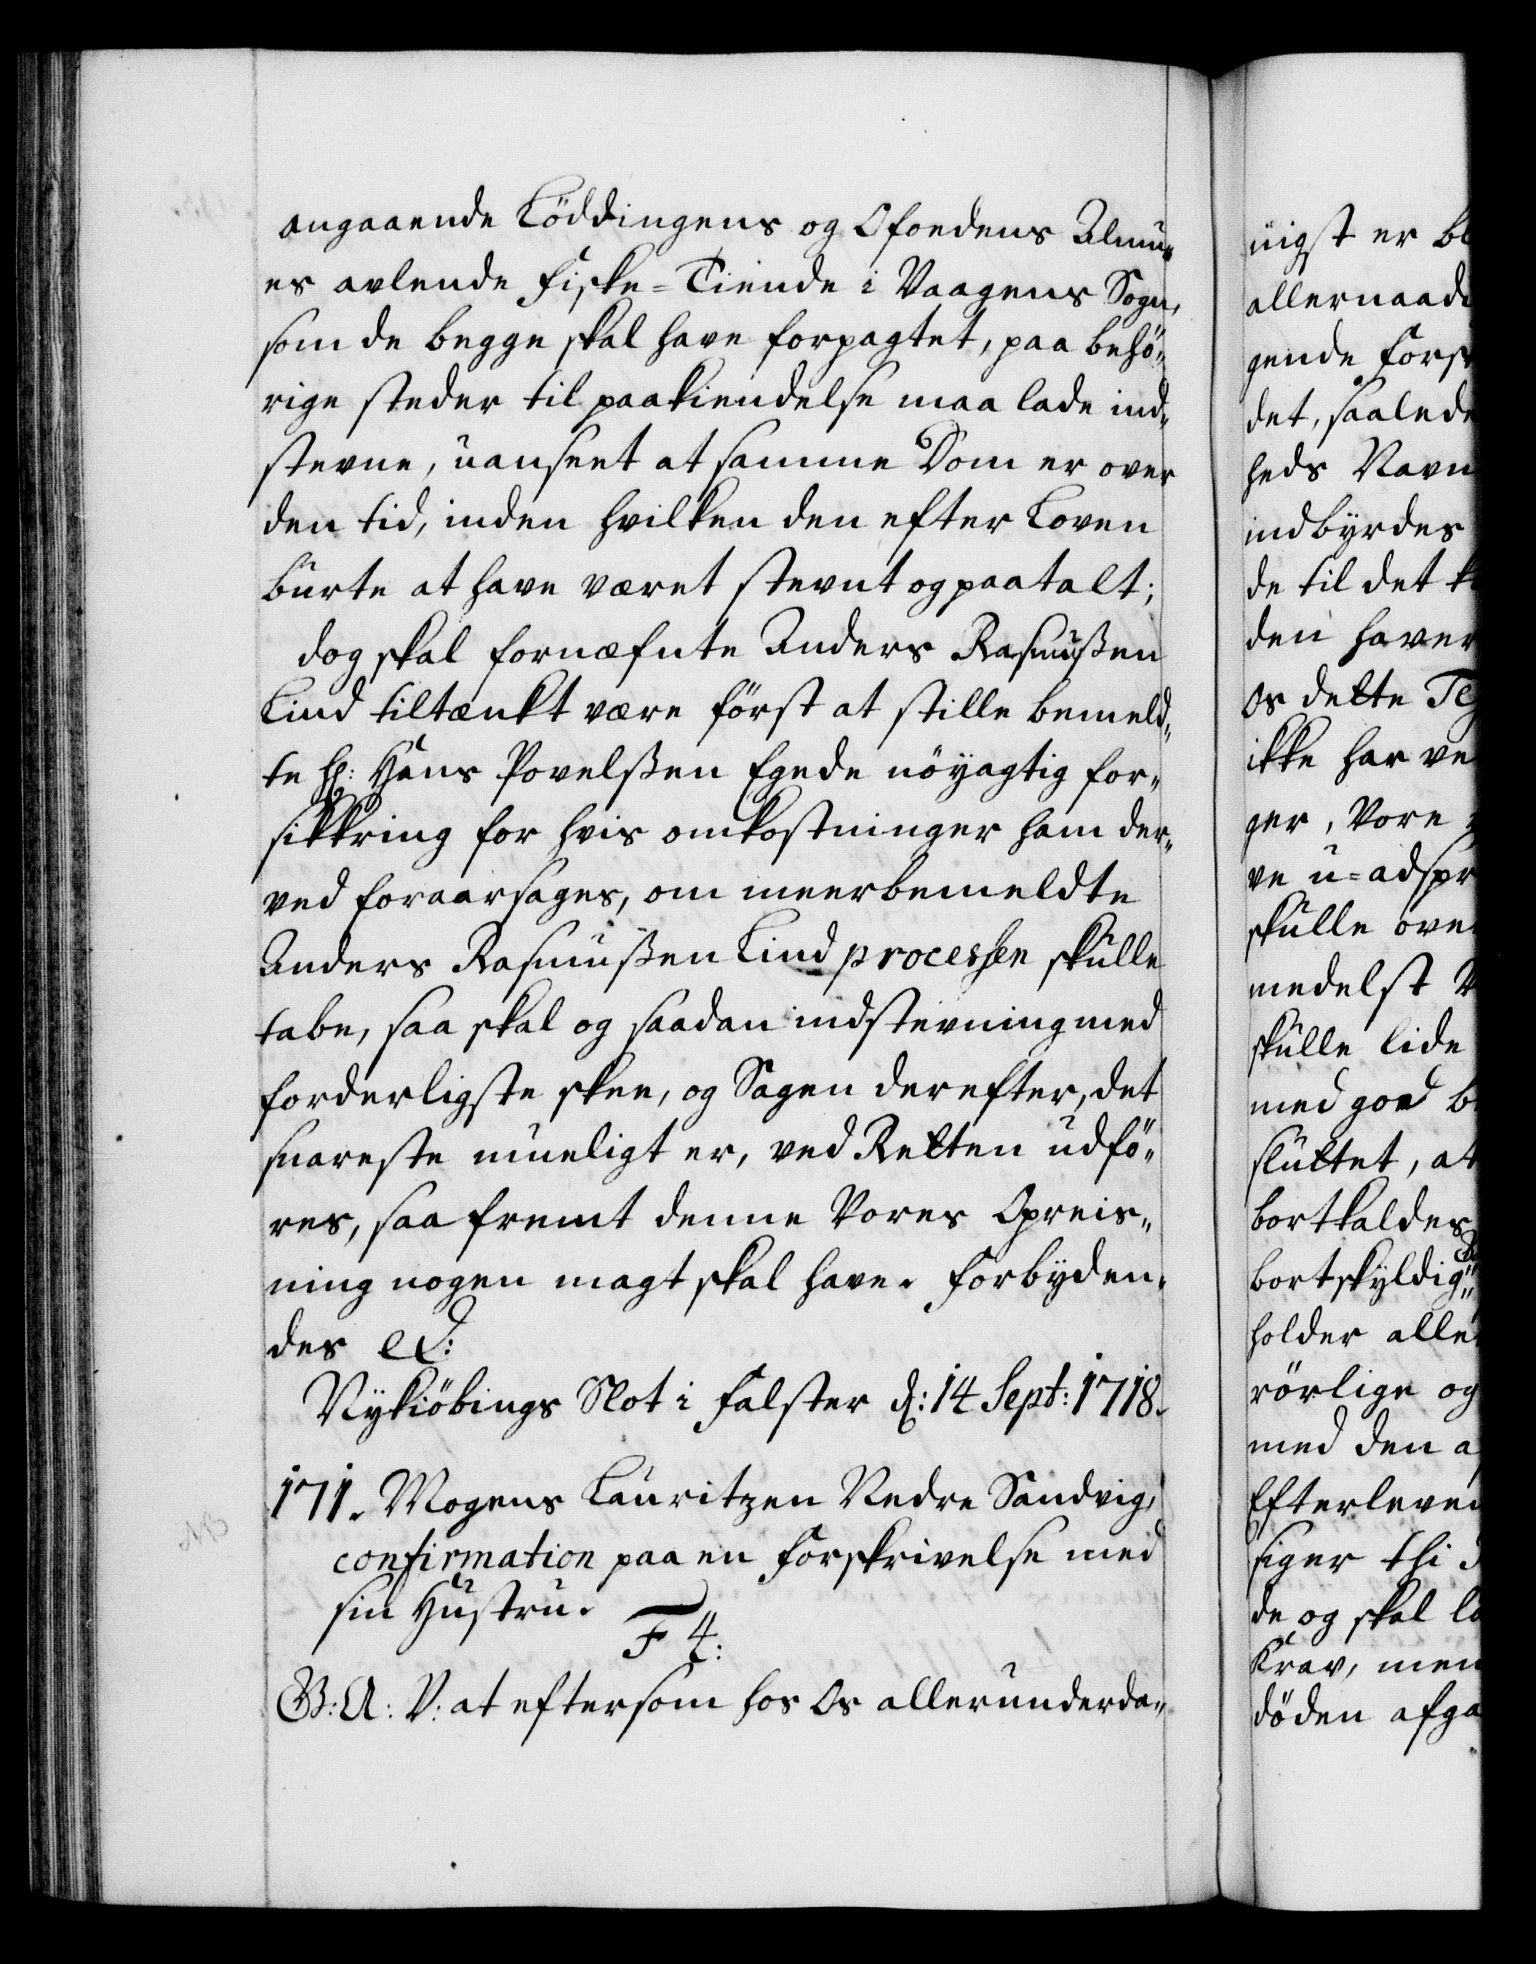 angaaende Löddingens og Ofoedens Almu„
es avlende Fiske=Tiende i Vaagens Sogn,
som de begge skal have forpagtet, paa behö„
rige steder til paakiendelse maa lade ind„
stevne, uanseet at samme Dom er over
den tid, inden hvilken den efter Loven
burte at have været stevnt og paatalt;
dog skal fornæfnte Anders Rasmußen
Lind tiltænkt være först at stille bemeld„
te Hans Povelßen Egede nöyagtig for„
sikkring for hvis omkostninger ham der„
ved foraarsages, om meerbemeldte
Anders Rasmußen Lind processen skulle
tabe, saa skal og saadan indstevning med
forderligste skee, og Sagen derefter, det
snareste mueligt er, ved Retten udfö„
res, saa fremt denne Vores Opreis„
ning nogen magt skal have. Forbyden„
des etc:
Nykiöbings Slot i Falster d: 14 Sept: 1718.
171. Mogens Lauritzen Nedre Sandvig,
confirmation paa en Forskrivelse med
sin Hustru.
F 4:
G: A: V: at eftersom hos Os allerunderda„
nigst er be
allernaadi
gende Forsk
det, saalede
heds Navn
indbyrdes
de til det k
den haver
Os dette Te
ikke har ve
ger, Vore
ve u=adspr
skulle ove
medelst
skulle lide
med god b
sluttet, at
bortkaldes
bortskyldig
holder alle
rörlige og
med den a
Efterleven
siger thi d
de og skal
Krav, men
döden afga